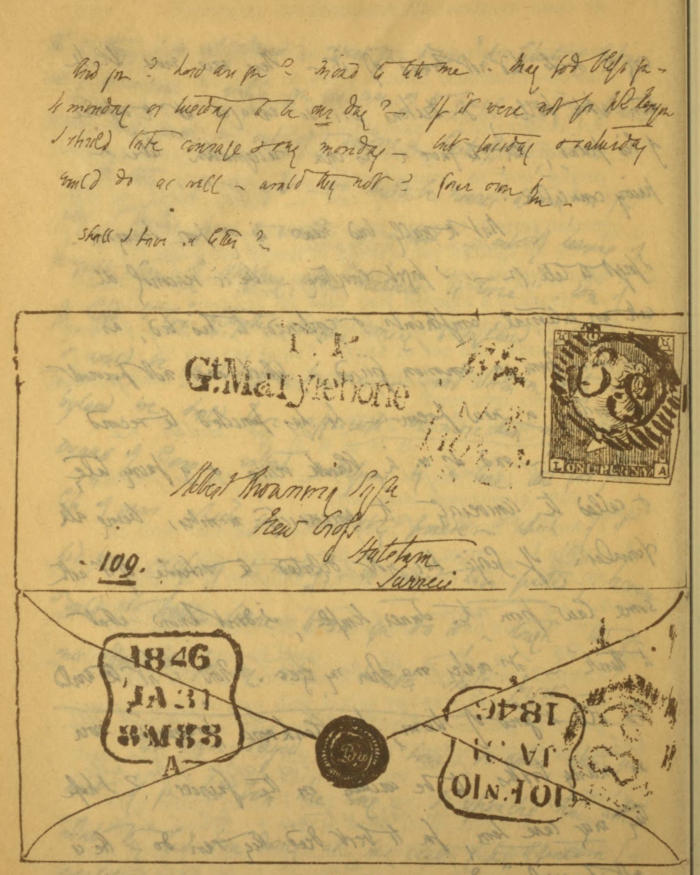 And you? how are you? mind to tell me. May God bless you -
Is monday or tuesday to be our day? - If it were not for Mr Kenyon
I should take courage & say monday - but tuesday & saturday
would do as well - would they not? Your own Ba -
Shall I have a letter?
T. P
Gt. Marylebone
68
L ONE PENNY A
Robert Browning Esqre
New Cross
Hatcham
Surrey
109.
1846
JA 31
A
1846
JA 31
10FN10